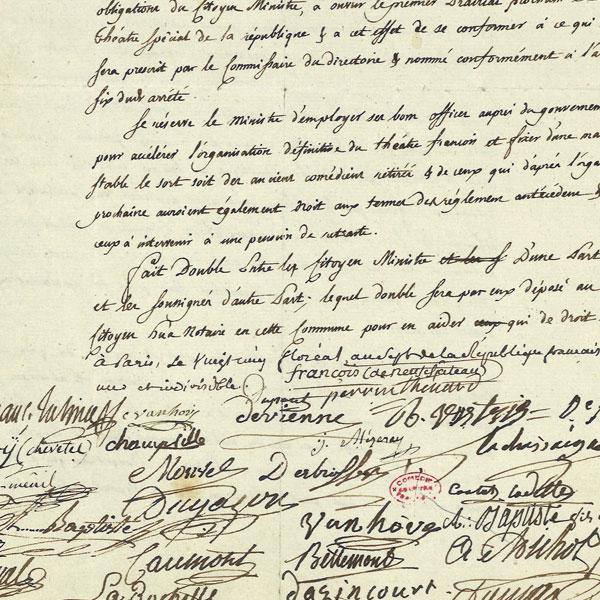 obligations du Citoyen Ministre, à ouvrir le premier Prairial prochain le
théatre spécial de la république & a cet effet de se conformer à ce qui
sera prescrit par le Commissaire du directoire & nommé conformément à l'a
six dudt arrêté.
Se réserve le ministre d'employer ses bons offices auprès du gouverneme
pour accélérer l'organisation définitive du théâtre françois et fixer d'une ma
stable le sort soit des anciens comédiens retirés & de ceux qui d'après l'orga
prochaine auroient également droit aux termes des réglemens antécédens &
ceux à intervenir à une pension de retraite.
Fait Double Entre les Citoyen Ministre et les S D'une Part
et les soussignés d'autre Part; lequel double sera par eux déposé au
Citoyen hüa Notaire en cette Commune pour en aider ceux qui de droit.
à Paris, Le vingt cinq floréal, an sept de la République française
une et indivisible.
françois (de neufchateau)
Dupont perrin thénard
vanhove devienne
J. Mézeray
champville lachassaigne
Monvel
Dugazon
Baptiste vanhove A. Baptiste
Caumont Bellemont A. E. Rouhol
La Rochelle Dazincourt